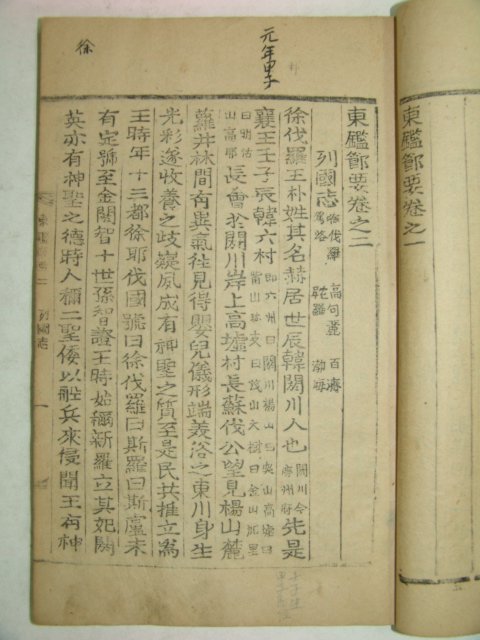 東鑑節要卷之一
元年甲子
徐
東鑑節要卷之二
列國志 徐伐羅 高句麗 百濟 駕洛 耽羅 渤海
徐伐羅王朴姓其名赫居世辰韓閼川人也 閼川今慶州府 先是
襄王壬子辰韓六村 卽六州曰閼川楊山曰突山高墟曰觜山珍支曰茂山大樹曰金山加里曰明活山高耶 長會於閼川岸上高墟村長蘇伐公望見楊山麓
蘿井林間有異氣往見得嬰兒儀形端美浴之東川身生
光彩遂收養之歧嶷夙成有神聖之質至是民共推立爲
王時年十三都徐耶伐國號曰徐伐羅曰斯羅曰斯盧未
有定號至金閼智十世孫智證王時始稱新羅立其妃閼
英亦有神聖之德時人稱二聖倭以船兵來侵聞王有神
列國志